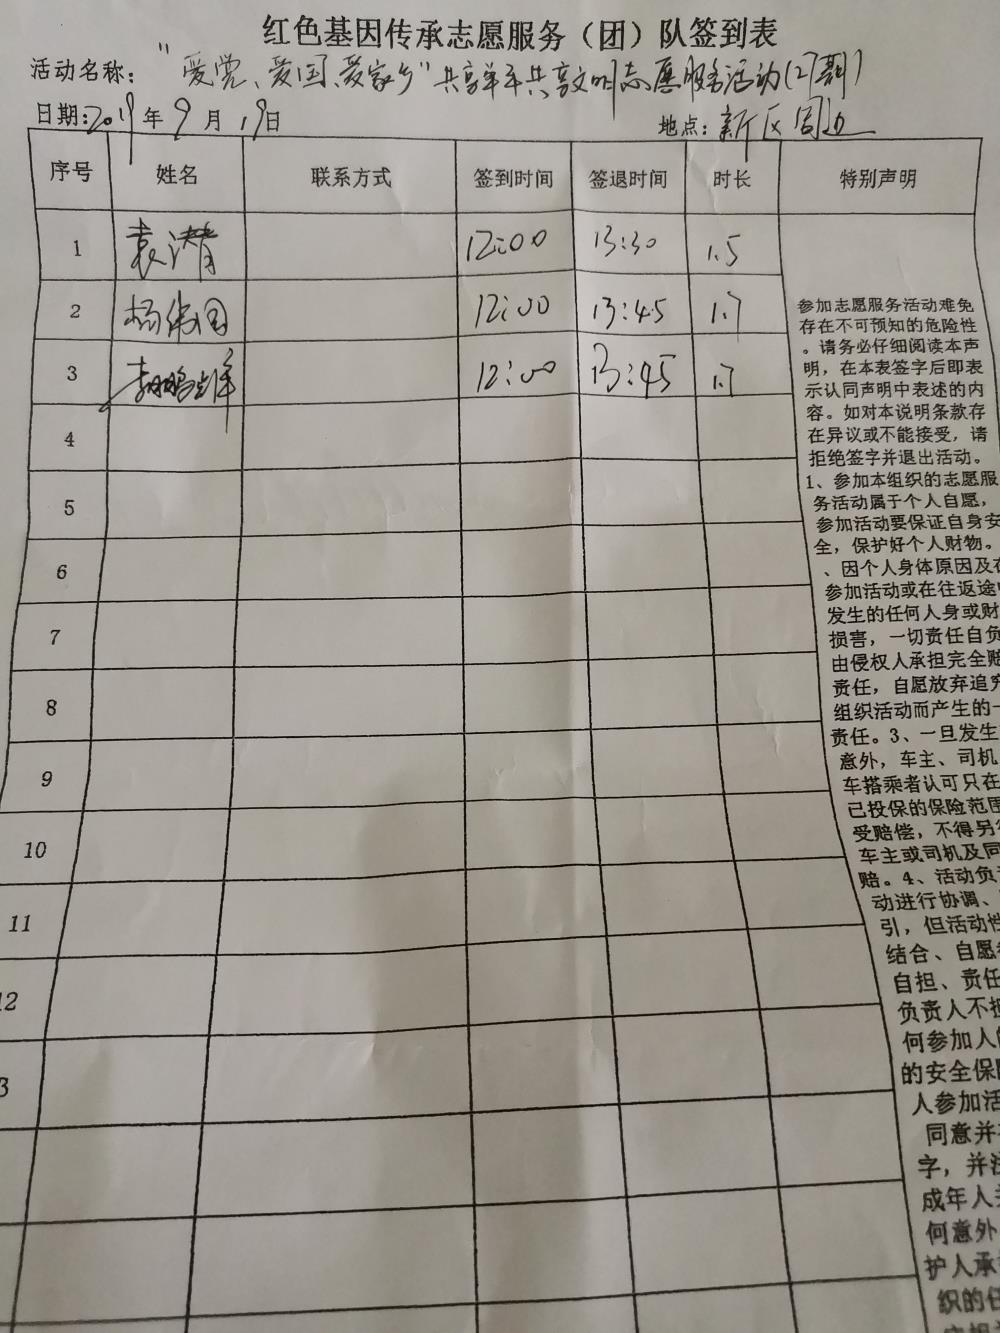 红色基因传承志愿服务（团）队签到表
活动名称："爱党、爱国、爱家乡"共享单车共享文明志愿服务活动(27期)
日期:2019年9月19日 地点:新区周边
序号 姓名 联系方式 签到时间 签退时间 时长 特别声明
1 袁潜 12:00 13:30 1.5
2 杨 12:00 13:45 1.7
3 李 12:00 13:45 1.7
4
5
6
7
8
9
10
11
12
3
参加志愿服务活动难免
存在不可预知的危险性
。请务必仔细阅读本声
明，在本表签字后即表
示认同声明中表述的内
容。如对本说明条款存
在异议或不能接受，请
拒绝签字并退出活动。
1、参加本组织的志愿服
务活动属于个人自愿，
参加活动要保证自身安
全，保护好个人财物。
、因个人身体原因及在
参加活动或在往返途中
发生的任何人身或财
损害，一切责任自负
由侵权人承担完全赔
责任，自愿放弃追究
组织活动而产生的一
责任。3、一旦发生
意外，车主、司机
车搭乘者认可只在
已投保的保险范围
受赔偿，不得另行
车主或司机及同
赔。4、活动负责
动进行协调、
引，但活动性
结合、自愿
自担、责任
负责人不担
何参加人的
的安全保险
人参加活
同意并
字，并注
成年人
何意外
护人承
织的任